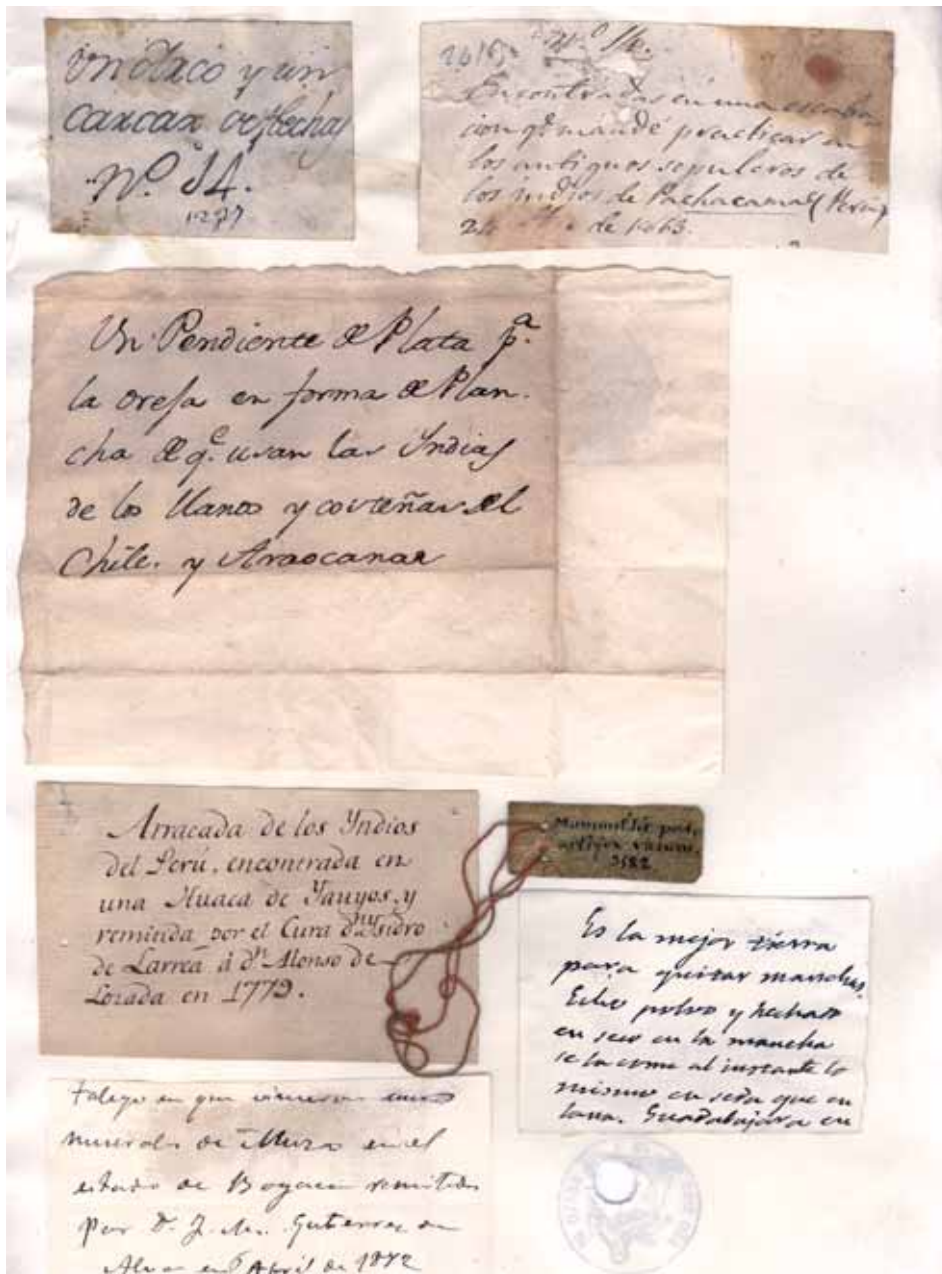 Un Arco y un
carcax de flechas
Nº 34.
1277
2615
Encontradas en una escaba
cion qe. mandé practicar en
los antiguos sepulcros de
los indios de Pachacamac (Perú)
24 de 1863.
Un Pendiente de Plata pa.
la oreja en forma de Plan.
cha de qe. usan las Yndias
de los llanos y costeñas del
Chile. y Araocanas
Arracada de los Yndios
del Perú, encontrada en
una Huaca de Yauyos, y
remitida por el Cura dn. Ysidro
de Larrea á dn. Alonso de
Lozada en 1779.
3582
Es la mejor tierra
para quitar manchas.
Echo polvo y hechado
en seco en la mancha
se la come al instante lo
mismo en seda que en
lana. Guadalajara en
Talego en que vinieron unos
minerales de Muzo en el
estado de Boyaca remitidos
por D. J. M. Gutierrez de
Alva en Abril de 1872